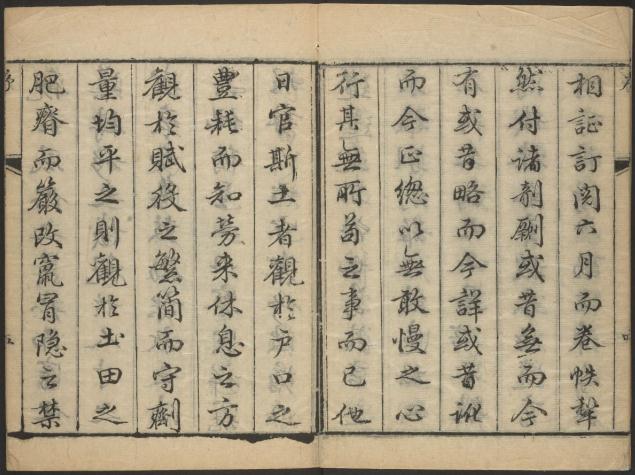 相証訂閱六月而卷帙犂
然付諸剞劂或昔無而今
有或昔略而今詳或昔訛
而今正總以無敢慢之心
行其無所苟之事而已他
日官斯土者觀於戶口之
豐耗而知勞来休息之方
觀於賦役之繁簡而守劑
量均平之則觀於土田之
肥瘠而嚴改竄冒隐之禁
序